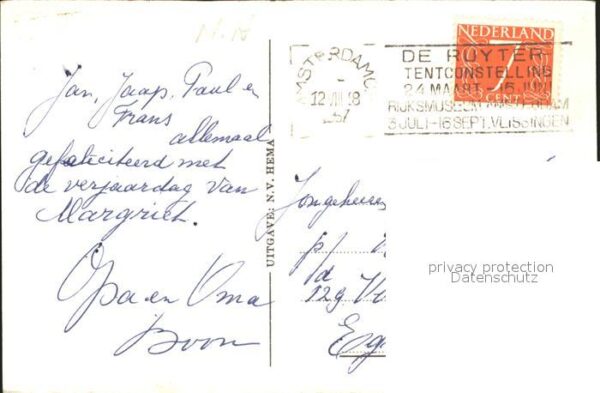 N.N
Jan, Jaap, Paul en
Frans
allemaal
gefeliciteerd met
de verjaardag van
Margriet.
Opa en Oma
Boon
UITGAVE: N.V. HEMA
AMSTERDAM
12
18
1957
DE RUYTER-
TENTOONSTELLING
24 MAART - 16 JUNI
RIJKSMUSEUM AMSTERDAM
3 JULI - 16 SEPT. VLISSINGEN
NEDERLAND
7
CENT
Jongeheren
p/
12g
privacy protection
Datenschutz